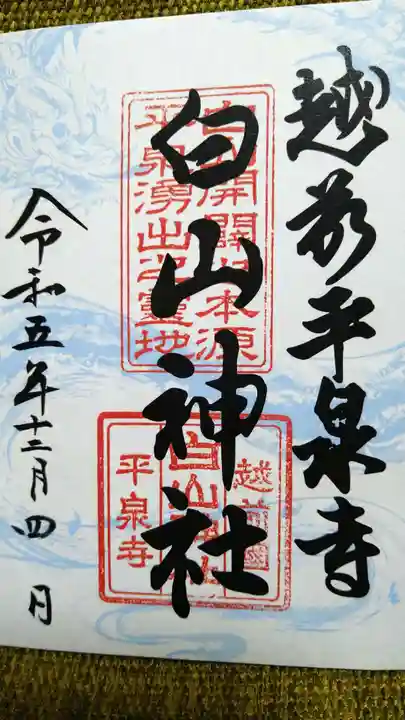 越前平泉寺
白山神社
令和五年十二月四日
白山開闢之本源
平泉湧出之靈地
越前國
白山神社
平泉寺